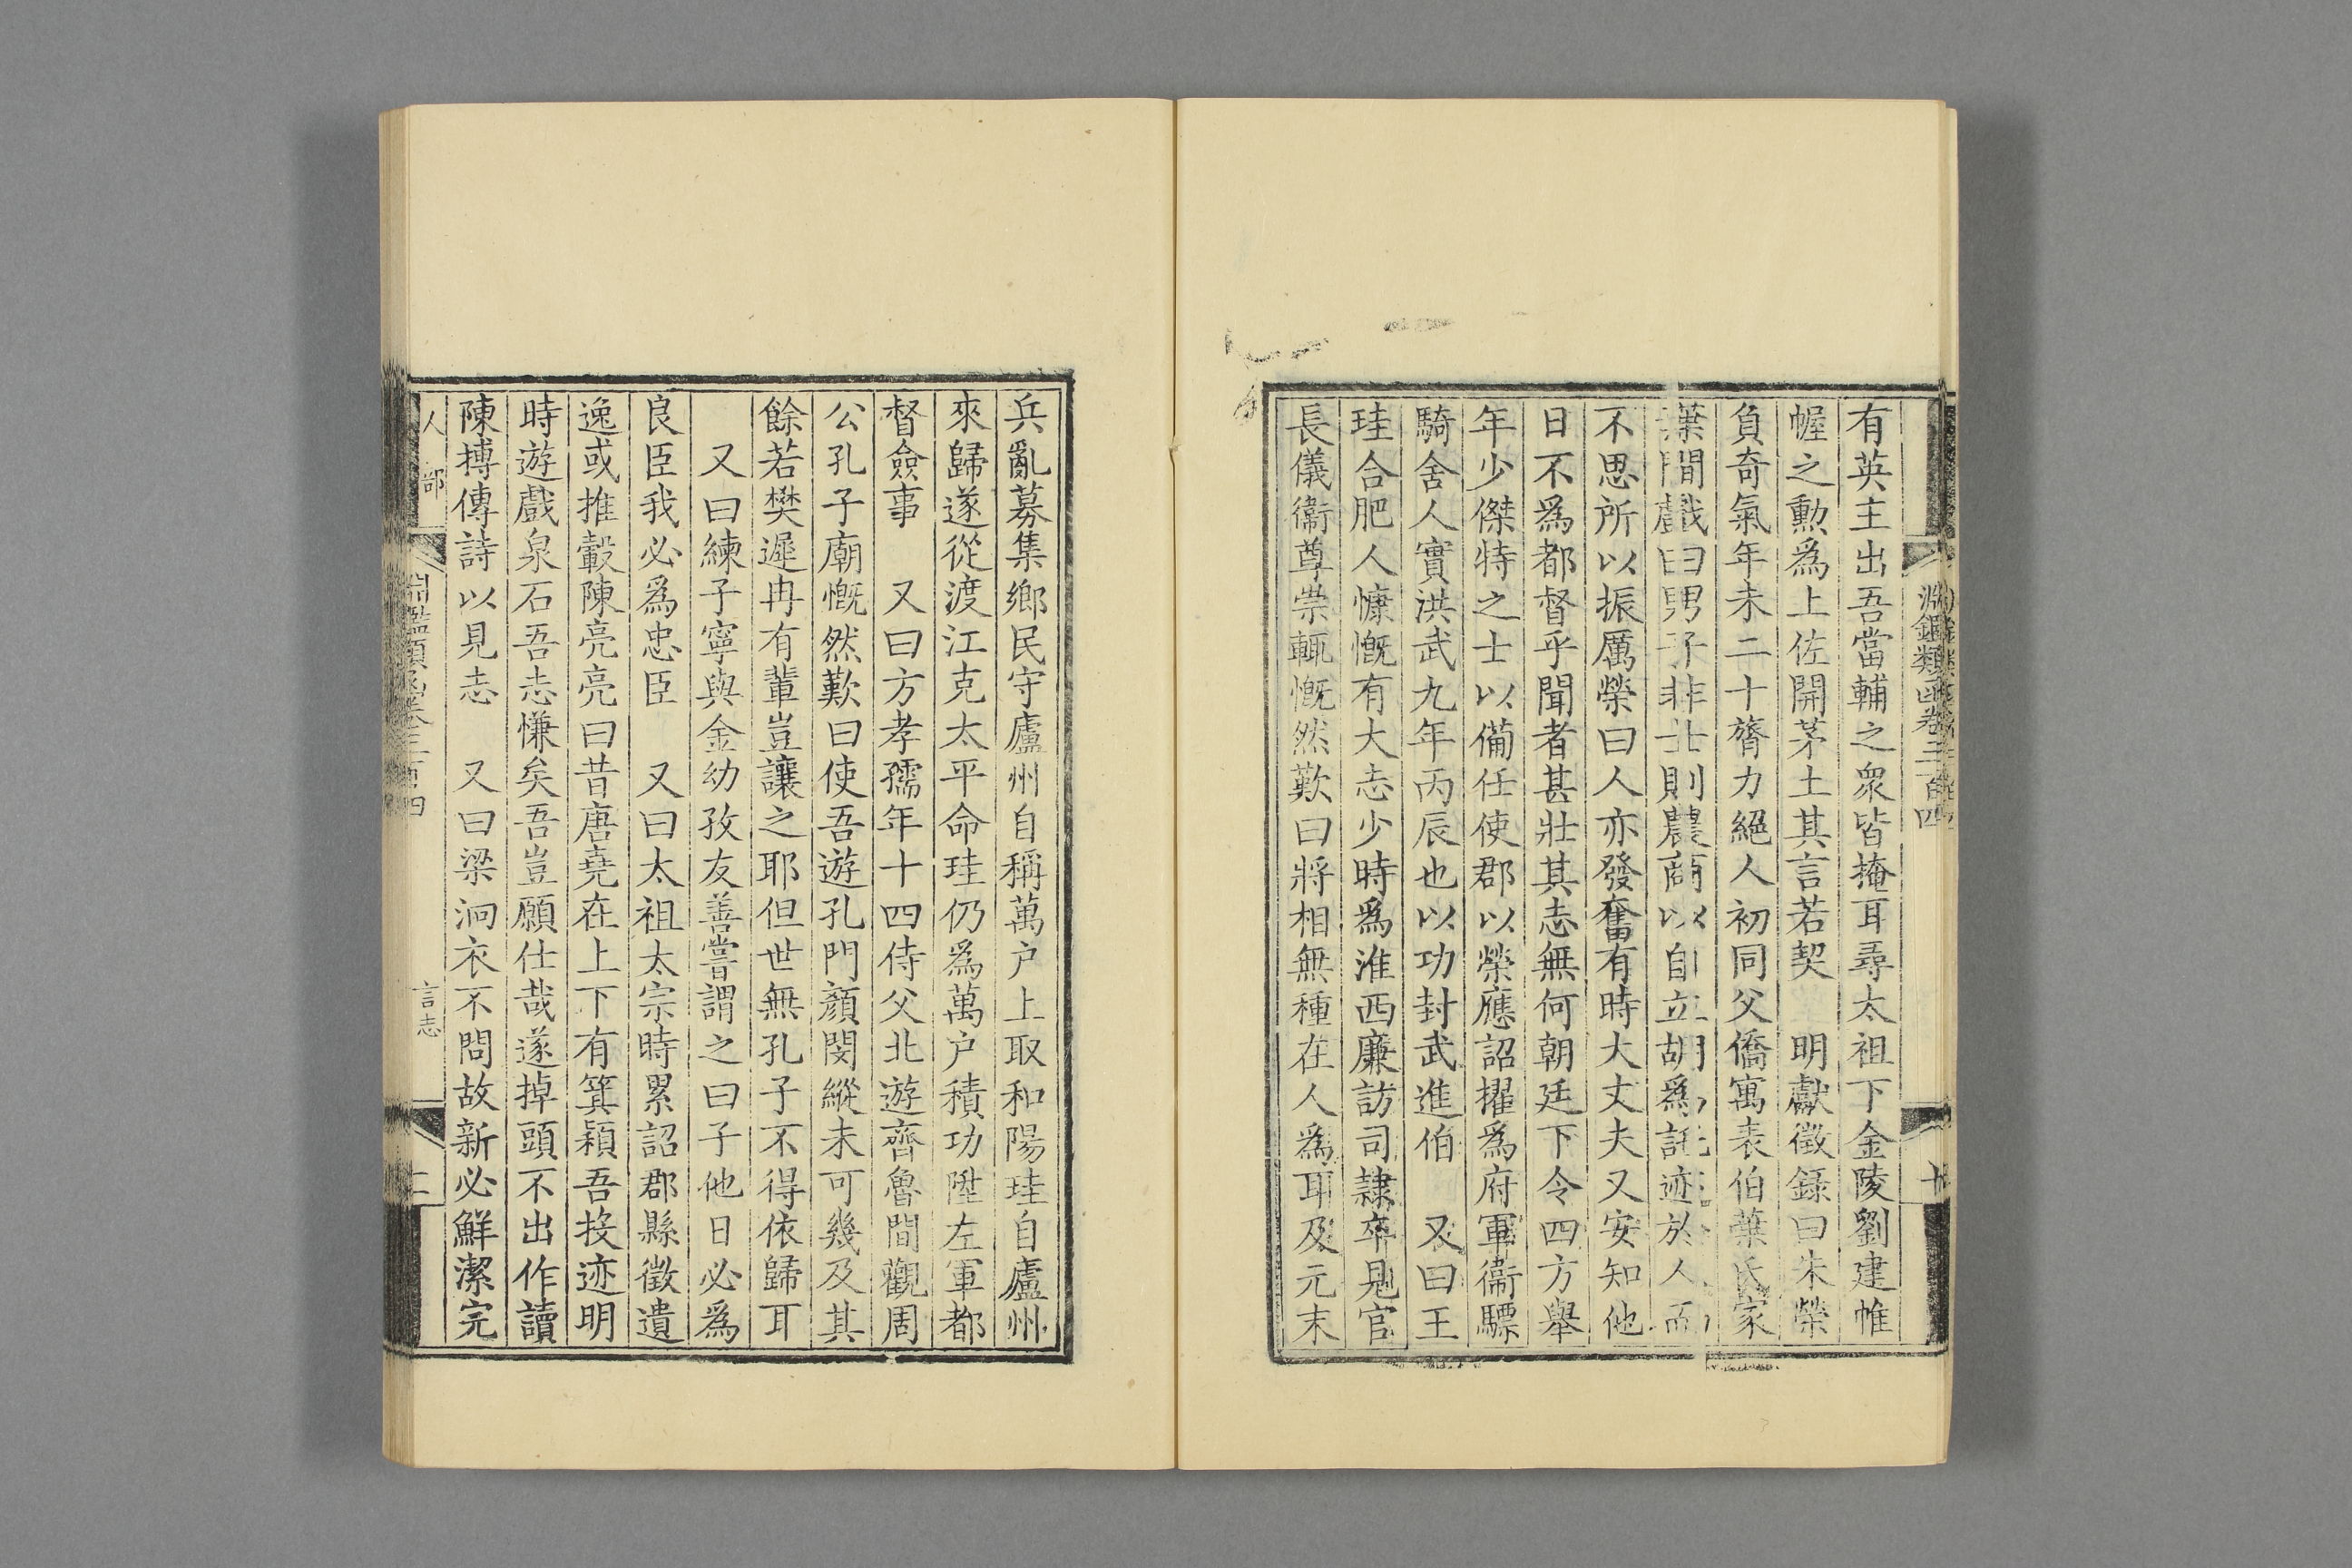 淵鑑類函卷三百四
有英主出吾當輔之衆皆掩耳尋太祖下金陵劉建帷
幄之勳爲上佐開茅土其言若契　明獻徵録曰朱榮
負奇氣年未二十膂力絕人初同父僑寓表伯葉氏家
葉間戲曰男子非士則農商以自立胡爲託迹於人而
不思所以振厲榮曰人亦發奮有時大丈夫又安知他
日不爲都督乎聞者甚壯其志無何朝廷下令四方舉
年少傑特之士以備任使郡以榮應詔擢爲府軍衞驃
騎舍人實洪武九年丙辰也以功封武進伯　又曰王
珪合肥人慷慨有大志少時爲淮西廉訪司隷卒見官
長儀衞尊崇輒慨然歎曰將相無種在人爲耳及元末
兵亂募集鄉民守廬州自稱萬户上取和陽珪自廬州
來歸遂從渡江克太平命珪仍爲萬户積功陞左軍都
督僉事　又曰方孝孺年十四侍父北遊齊魯間觀周
公孔子廟慨然歎曰使吾遊孔門顔閔縱未可幾及其
餘若樊遲冉有輩豈讓之耶但世無孔子不得依歸耳
又曰練子寧與金幼孜友善嘗謂之曰子他日必爲
良臣我必爲忠臣　又曰太祖太宗時累詔郡縣徵遺
逸或推轂陳亮亮曰昔唐堯在上下有箕潁吾投迹明
時遊戲泉石吾志慊矣吾豈願仕哉遂掉頭不出作讀
陳摶傳詩以見志　又曰梁泂衣不問故新必鮮潔完
人部　淵鑑類函卷三百四　言志